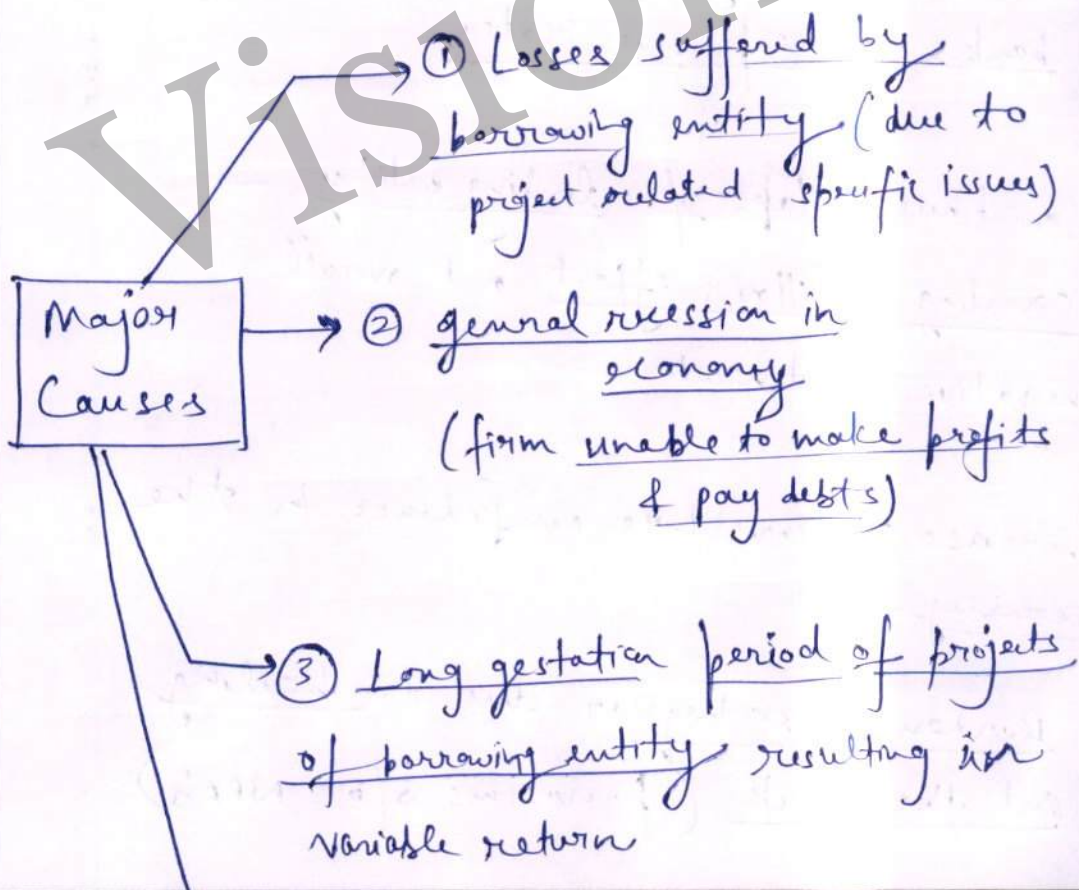 Vision
① Losses suffered by
borrowing entity (due to
project related specific issues)
Major
Causes
② general recession in
economy
(firm unable to make profits
& pay debts)
③ Long gestation period of projects
of borrowing entity resulting in
variable return